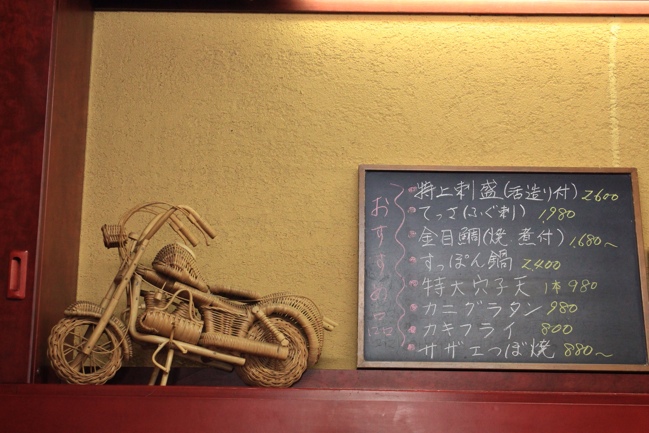 おすすめ品
特上刺盛(活造り付) 2600
てっさ(ふぐ刺) 1,980
金目鯛(焼.煮付) 1,680〜
すっぽん鍋 2,400
特大穴子天 1本 980
カニグラタン 980
カキフライ 800
サザエつぼ焼 880〜